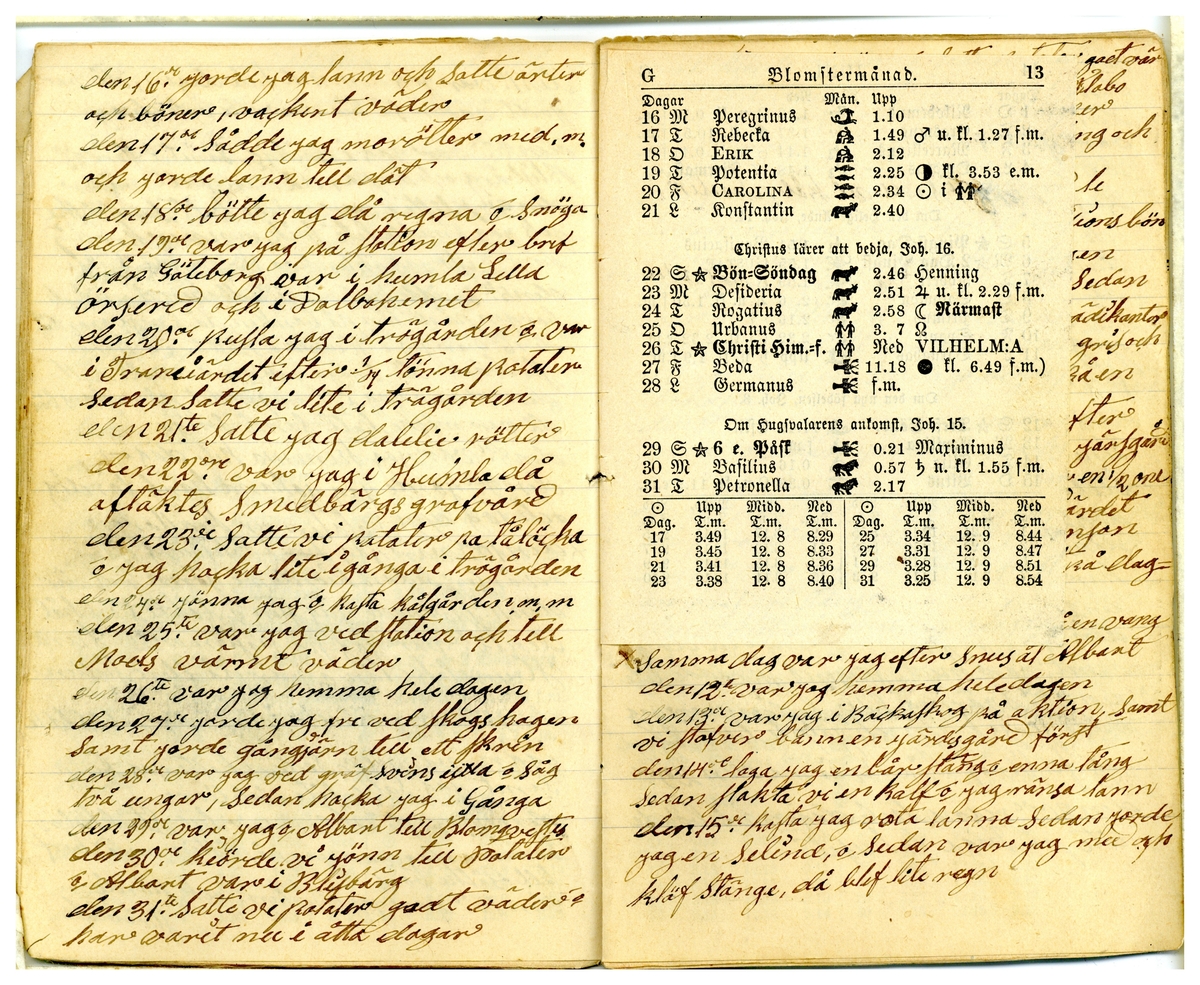 den 16de jorde jag lann och satte ärter
och böner, vackent väder
den 17de sådde jag morötter med. m.
och jorde lann till dåt
den 18de bötte jag då regna o snöga
den 19de var jag på station efter bref
från Göteborg var i humla Lilla
örsered och i Dalbohemet
den 20de pussa jag i trägården o var
i efter 1/4 tönna potater
sedan satte vi lite i trägården
den 21te satte jag dalelie rötter
den 22dre var jag i Humla då
aftäktes Smedbärgs grafvård
den 23de satte vi potater pa
o jag hacka lite i gånga i trägården
den 24de jönna jag o kasta kålgården m, m
den 25te var jag ved station och till
Moels värmt väder
den 26te var jag hemma hele dagen
den 27de jorde jag fre ved skogs hagen
samt jorde gångjärn till ett skrin
den 28de var jag ved gräf svins o såg
två ungar, sedan hacka jag i Gånga
den 29de var jag o Albart till
den 30de kiörde vi jönn till Potater
o Albart var i
den 31te satte vi potater godt väder o
har varit nu i åtta dagar
G Blomstermånad. 13
Dagar Mån. Upp
16 M Peregrinus 1.10
17 T Rebecka 1.49 ♂ u. kl. 1.27 f.m.
18 O ERIK 2.12
19 T Potentia 2.25 ◑ kl. 3.53 e.m.
20 F CAROLINA 2.34 ☉ i ♊
21 L Konstantin 2.40
Christus lärer att bedja, Joh. 16.
22 S ☆ Bön=Söndag 2.46 Henning
23 M Desideria 2.51 ♃ u. kl. 2.29 f.m.
24 T Rogatius 2.58 ☾ Närmast
25 O Urbanus 3. 7 ☊
26 T ☆ Christi Him.=f. Ned VILHELM:A
27 F Beda 11.18 ● kl. 6.49 f.m.)
28 L Germanus f.m.
Om Hugsvalarens ankomst, Joh. 15.
29 S ☆ 6 e. Påsk 0.21 Maximinus
30 M Basilius 0.57 ♄ n. kl. 1.55 f.m.
31 T Petronella 2.17
☉ Upp Midd. Ned ☉ Upp Midd. Ned
Dag. T.m. T.m. T.m. Dag. T.m. T.m. T.m.
17 3.49 12. 8 8.29 25 3.34 12. 9 8.44
19 3.45 12. 8 8.33 27 3.31 12. 9 8.47
21 3.41 12. 8 8.36 29 3.28 12. 9 8.51
23 3.38 12. 8 8.40 31 3.25 12. 9 8.54
godt vär
och
sedan
på dag=
samma dag var jag efter snus åt Albart
den 12te var jag hemma hele dagen
den 13de var jag i Bäckaskog på aktion, samt
vi en järdsgård först
den 14de laga jag en bår stång o enna tång
sedan slakta vi en kalf o jag ränsa lann
den 15de kasta jag lanna sedan jorde
jag en selind, o sedan var jag med och
klöf stänge, då blef lite regn